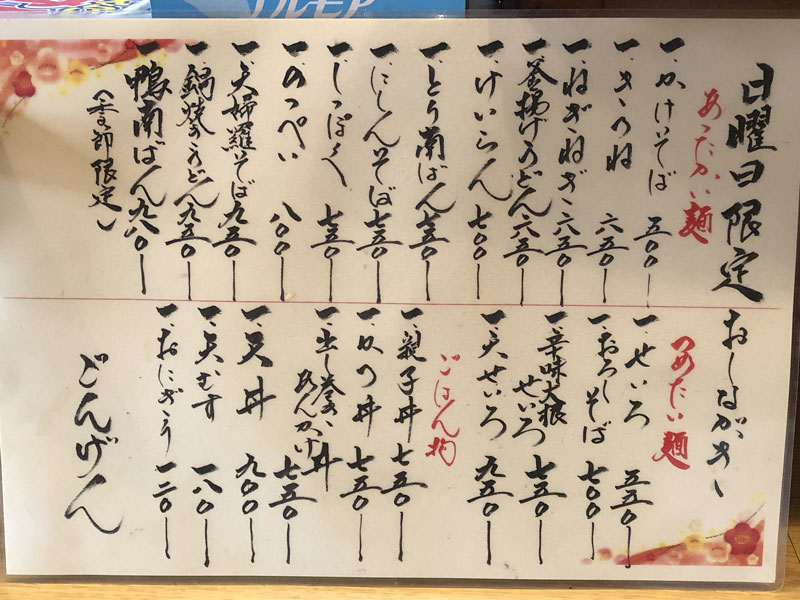 日曜日限定 おしながき
あったかい麺
一、かけそば 五〇〇
一、きつね 六五〇
一、ねぎねぎ 六五〇
一、釜揚げうどん 六五〇
一、けいらん 七〇〇
一、とり南ばん 七五〇
一、にしんそば 七五〇
一、しっぽく 七五〇
一、のっぺい 八〇〇
一、天婦羅そば 九五〇
一、鍋焼きうどん 九五〇
一、鴨南ばん 九八〇
(季節限定)
つめたい麺
一、せいろ 五五〇
一、おろしそば 七〇〇
一、辛味大根せいろ 七五〇
一、天せいろ 九五〇
ごはん物
一、親子丼 七五〇
一、かつ丼 七五〇
一、出し巻きあんかけ丼 七五〇
一、天丼 九〇〇
一、天むす 一八〇
一、おにぎり 一二〇
ごんげん